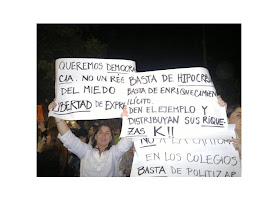 QUEREMOS DEMOCRA
CIA. NO UN RÉG
DEL MIEDO
LIBERTAD DE EXPRE
BASTA DE HIPOCRE
BASTA DE ENRIQUECIMIEN
ILÍCITO.
DEN EL EJEMPLO Y
DISTRIBUYAN SUS RIQUE
ZAS K!!
NO A LA
EN LOS COLEGIOS
BASTA DE POLITIZAR